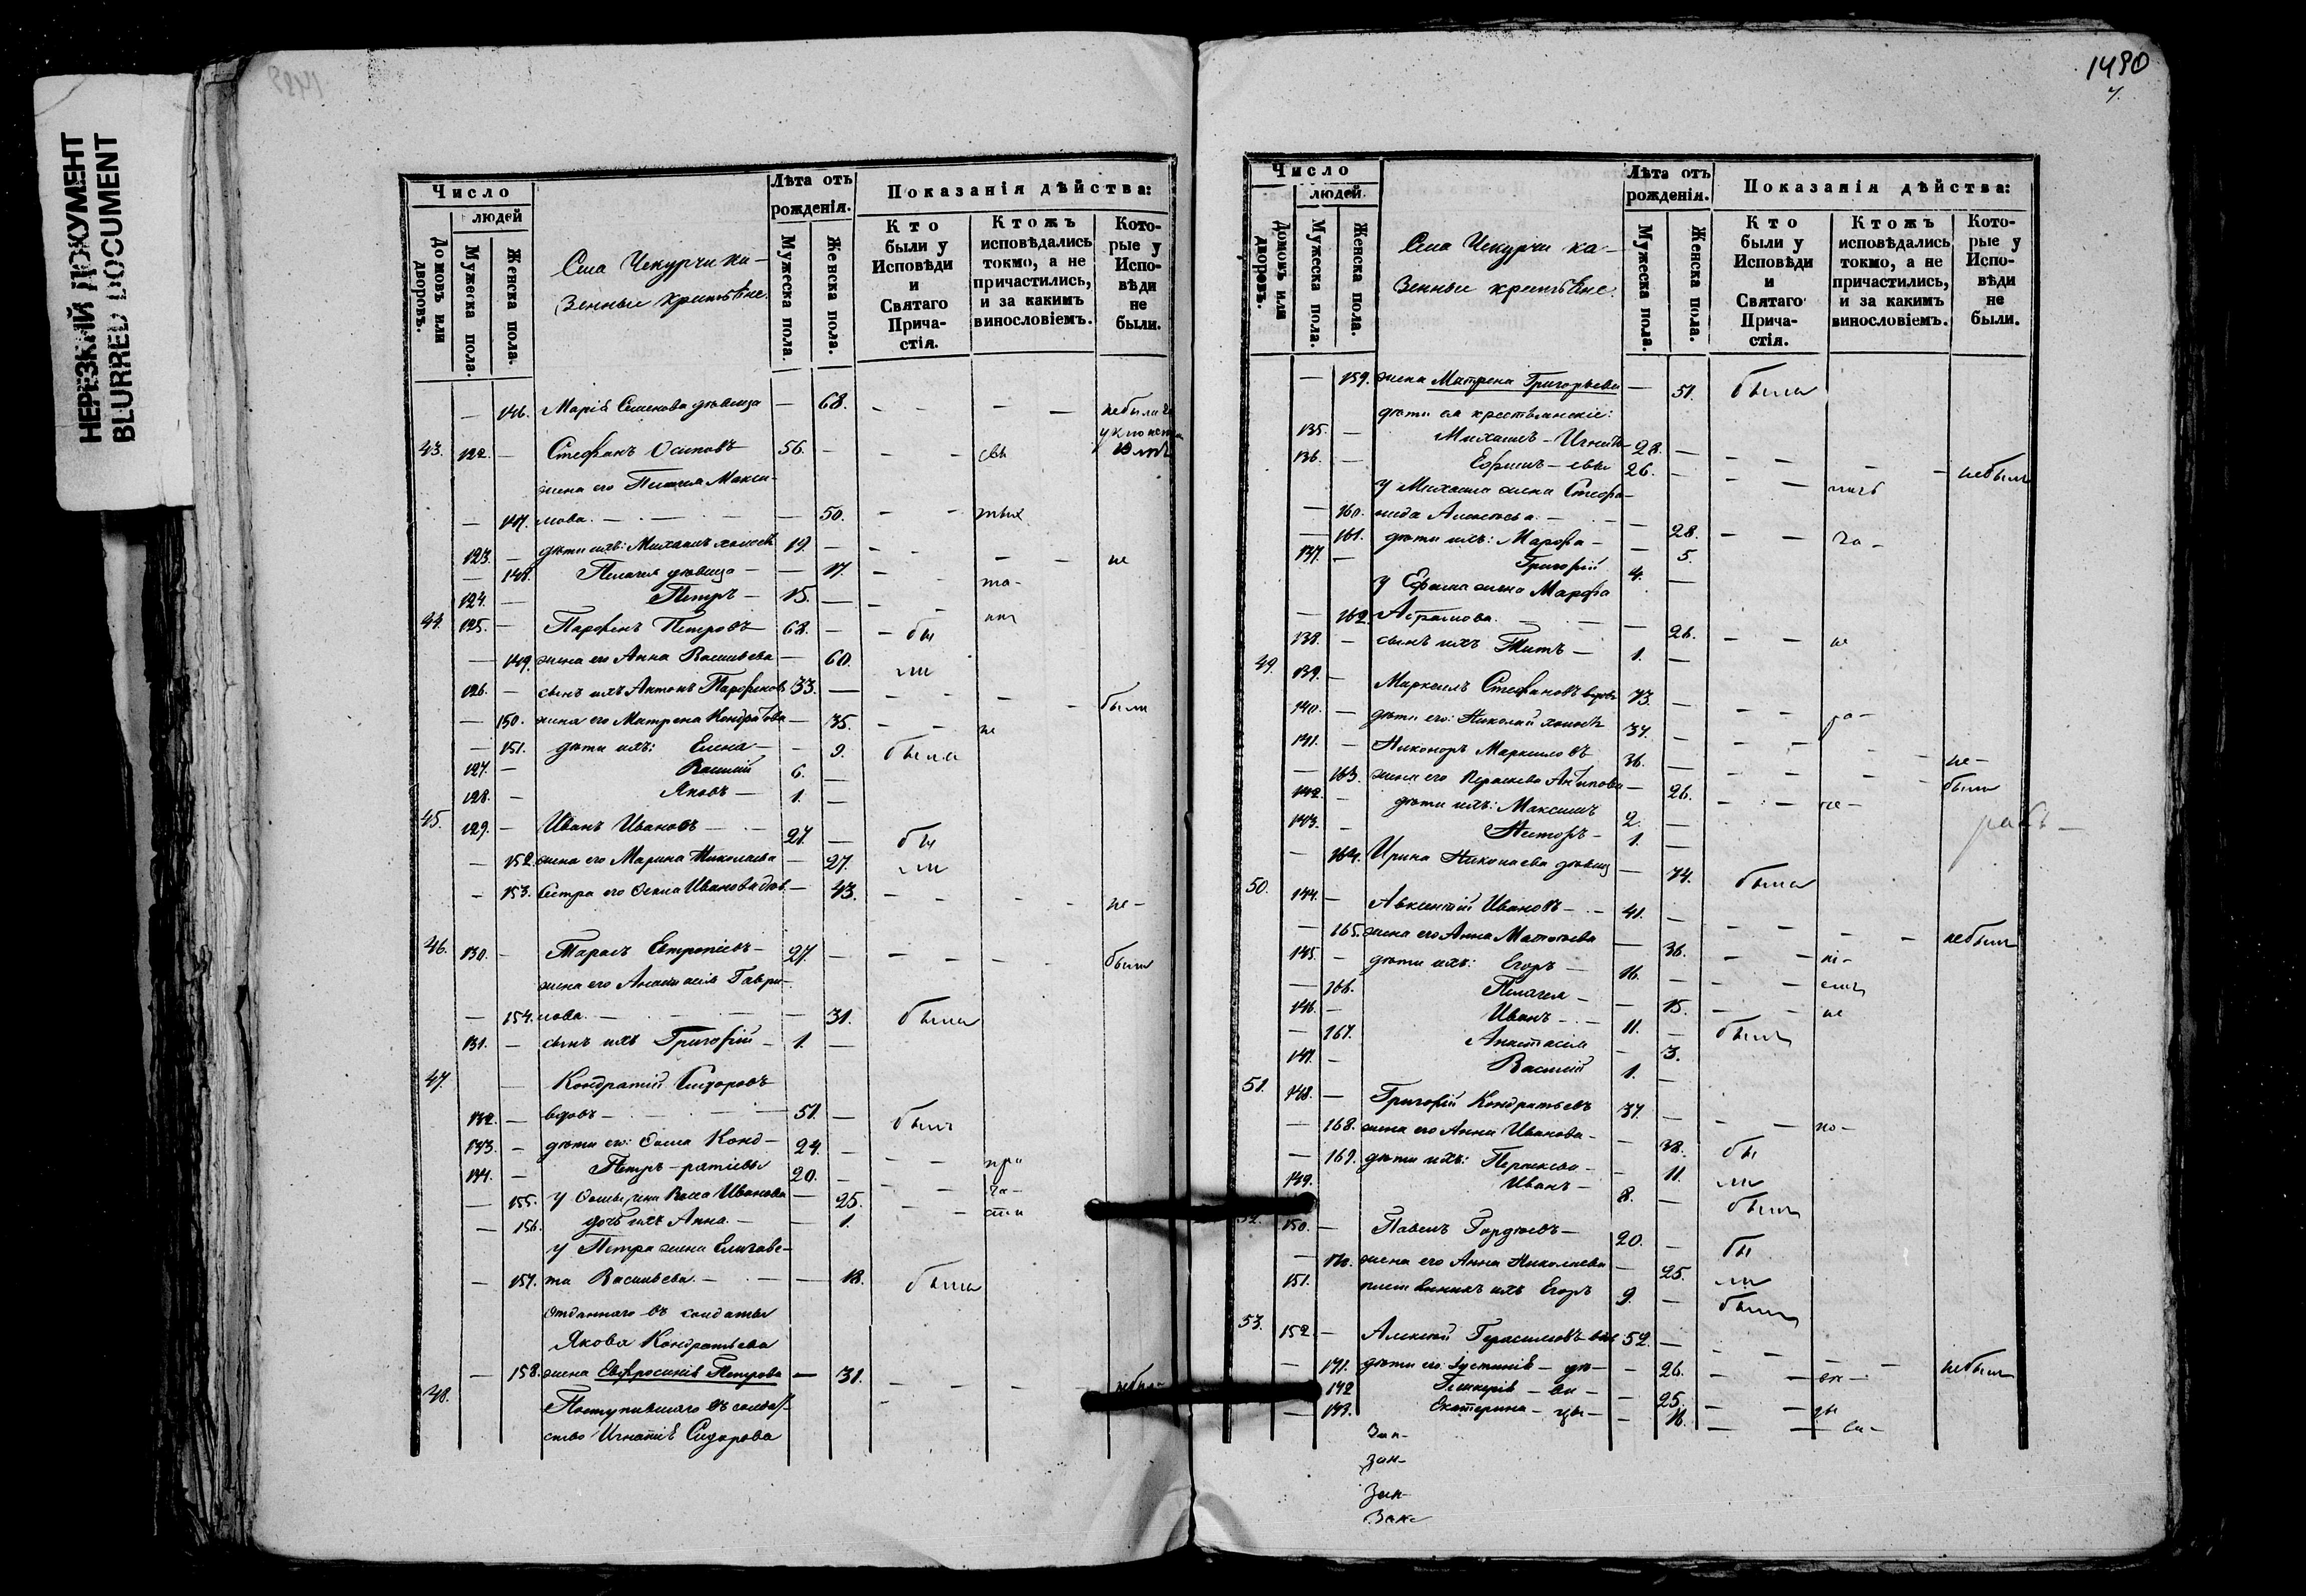 НЕРЕЗКИЙ ДОКУМЕНТ
BLURRED DOCUMENT
Число
людей
Домовъ или дворовъ.
Мужеска пола.
Женска пола.
Села Чекурчи ка-
зенные крестьяне.
Лѣта отъ рожденія.
Мужеска пола.
Женска пола.
Показанія дѣйства:
Кто были у Исповѣди и Святаго Прича-стія.
Ктожъ исповѣдались токмо, а не причастились, и за какимъ винословіемъ.
Кото-рые у Испо-вѣди не были.
— 146. Марія Семенова дѣвица — 68. - - - - не была
43. 122. — Стефанъ Осиповъ 56. —
жена его Пелагея Макси-
— 147. мова. — 50.
123. — дѣти ихъ: Михаилъ холостъ 19. — не
— 148. Пелагея дѣвица — — 17.
124. — Петръ — 15. —
44. 125. — Парфенъ Петровъ 68. — бы
— 149. жена его Анна Васильева — 60. ли
126. — сынъ ихъ Антонъ Парфеновъ 33. — были
— 150. жена его Матрена Кондратова — 35. не
— 151. дѣти ихъ: Елена — — 9. была
127. — Василий 6. —
128. — Яковъ — 1. —
45. 129. — Иванъ Ивановъ — 27. — бы
— 152. жена его Марина Николаева — 27. ли
— 153. Сестра его Ивановадѣв. — 43. не-
46. 130. — Тарасъ Евтропіевъ — 27. — были
жена его Анастасія Гаври-
— 154. лова. — 31. была
131. — сынъ ихъ Григорій — 1. —
47. — Кондратій Сидоровъ
132. — вдовъ — 51. — былъ
133. — дѣти его: Ѳома Конд- 24. —
134. — Петръ — ратіевы 20. — при
— 155. у Ѳомы жена Васса Иванова — 25. ча-
— 156. дочь ихъ Анна. — — 1. сти
у Петра жена Елизаве-
— 157. та Васильева. — — 18. была
Отданнаго въ солдаты
Якова Кондратьева
— 158. жена Евфросинія Петрова — 31.
48. Поступившаго въ солдат-
ство Игнатія Сидорова
1480
Число
людей.
Домовъ или дворовъ.
Мужеска пола.
Женска пола.
Села Чекурчи ка-
зенные крестьяне.
Лѣта отъ рожденія.
Мужеска пола.
Женска пола.
Показанія дѣйства:
Кто были у Исповѣди и Святаго Прича-стія.
Ктожъ исповѣдались токмо, а не причастились, и за какимъ винословіемъ.
Кото-рые у Испо-вѣди не были.
— 159. жена Матрена Григорьева — 51. была
дѣти ея крестьянскіе:
135. — Михаилъ — Игнать- 28. —
136. — Ефимъ — евы 26. — небыли
у Михаила жена Стефа-
— 160. нида Алексѣева. — — 28.
— 161. дѣти ихъ: Марфа — — 5.
137. — Григорій 4. —
у Ефима жена Марфа
— 162. Абрамова. — 26. не
138. — сынъ ихъ Титъ — 1. —
49. 139. — Маркеллъ Стефановъ вдовъ 73. —
140. — дѣти его: Николай холостъ 37. —
141. — Никоноръ Маркелловъ 36. — не-
— 163. жена его Параскева Антипова — 26. были
142. — дѣти ихъ: Максимъ 2. —
143. — Несторъ — 1. —
— 164. Ирина Николаева дѣвица — 74. была
50. 144. — Авксентій Ивановъ — 41. —
— 165. жена его Анна Матѳеева — 36. небыли
145. — дѣти ихъ: Егоръ — 16. —
— 166. Пелагея — — 15. не
146. — Иванъ — 11. — былъ
— 167. Анастасія — 3.
147. — Василий 1. —
51. 148. — Григорій Кондратьевъ 37. — по-
— 168. жена его Анна Иванова — — 38. бы
— 169. дѣти ихъ: Параскева — — 11. ли
149. Иванъ — 8. — былъ
52. 150. — Павелъ Гордѣевъ — 20. — бы
— 170. жена его Анна Николаева — 25. ли
151. ихъ Егоръ 9. — былъ
53. 152. — Алексѣй Герасимовъ вдов 52. —
— 171. дѣти его: Іустинія — дѣ — — 26. небыли
172 Гликерія — ви — — 25.
— 173. Екатерина — цы — — 16.
Зак-